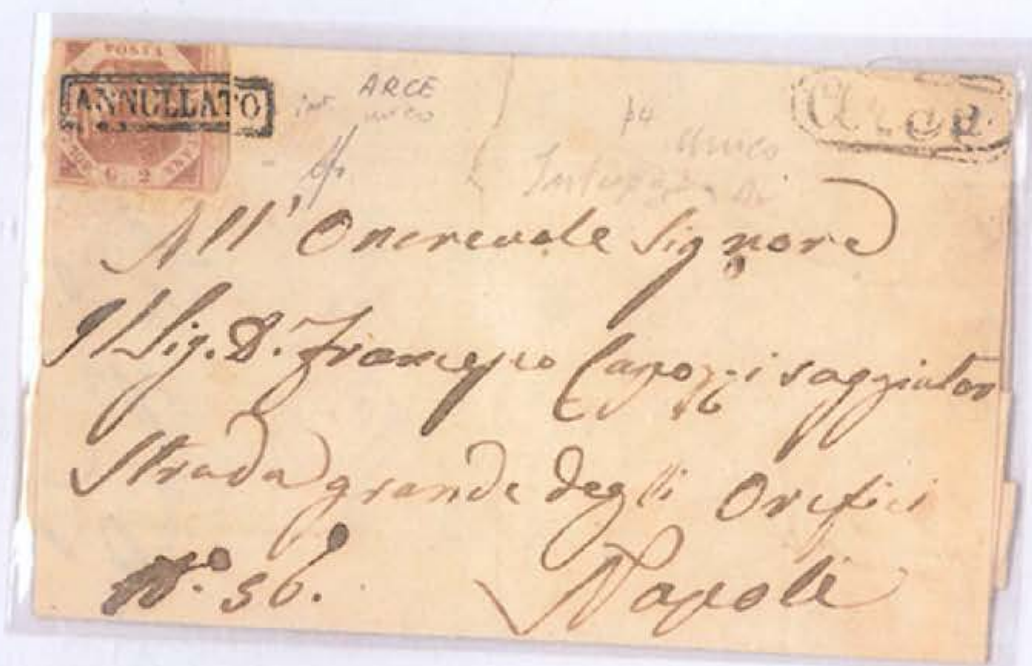 POSTA
ANNULLATO
G. 2
ARCE
unico
Arce
All' Onorevole Signore
Il Sig. D. Francesco Capozzi saggiator
Strada grande degli Orefici
N.º 56.
Napoli